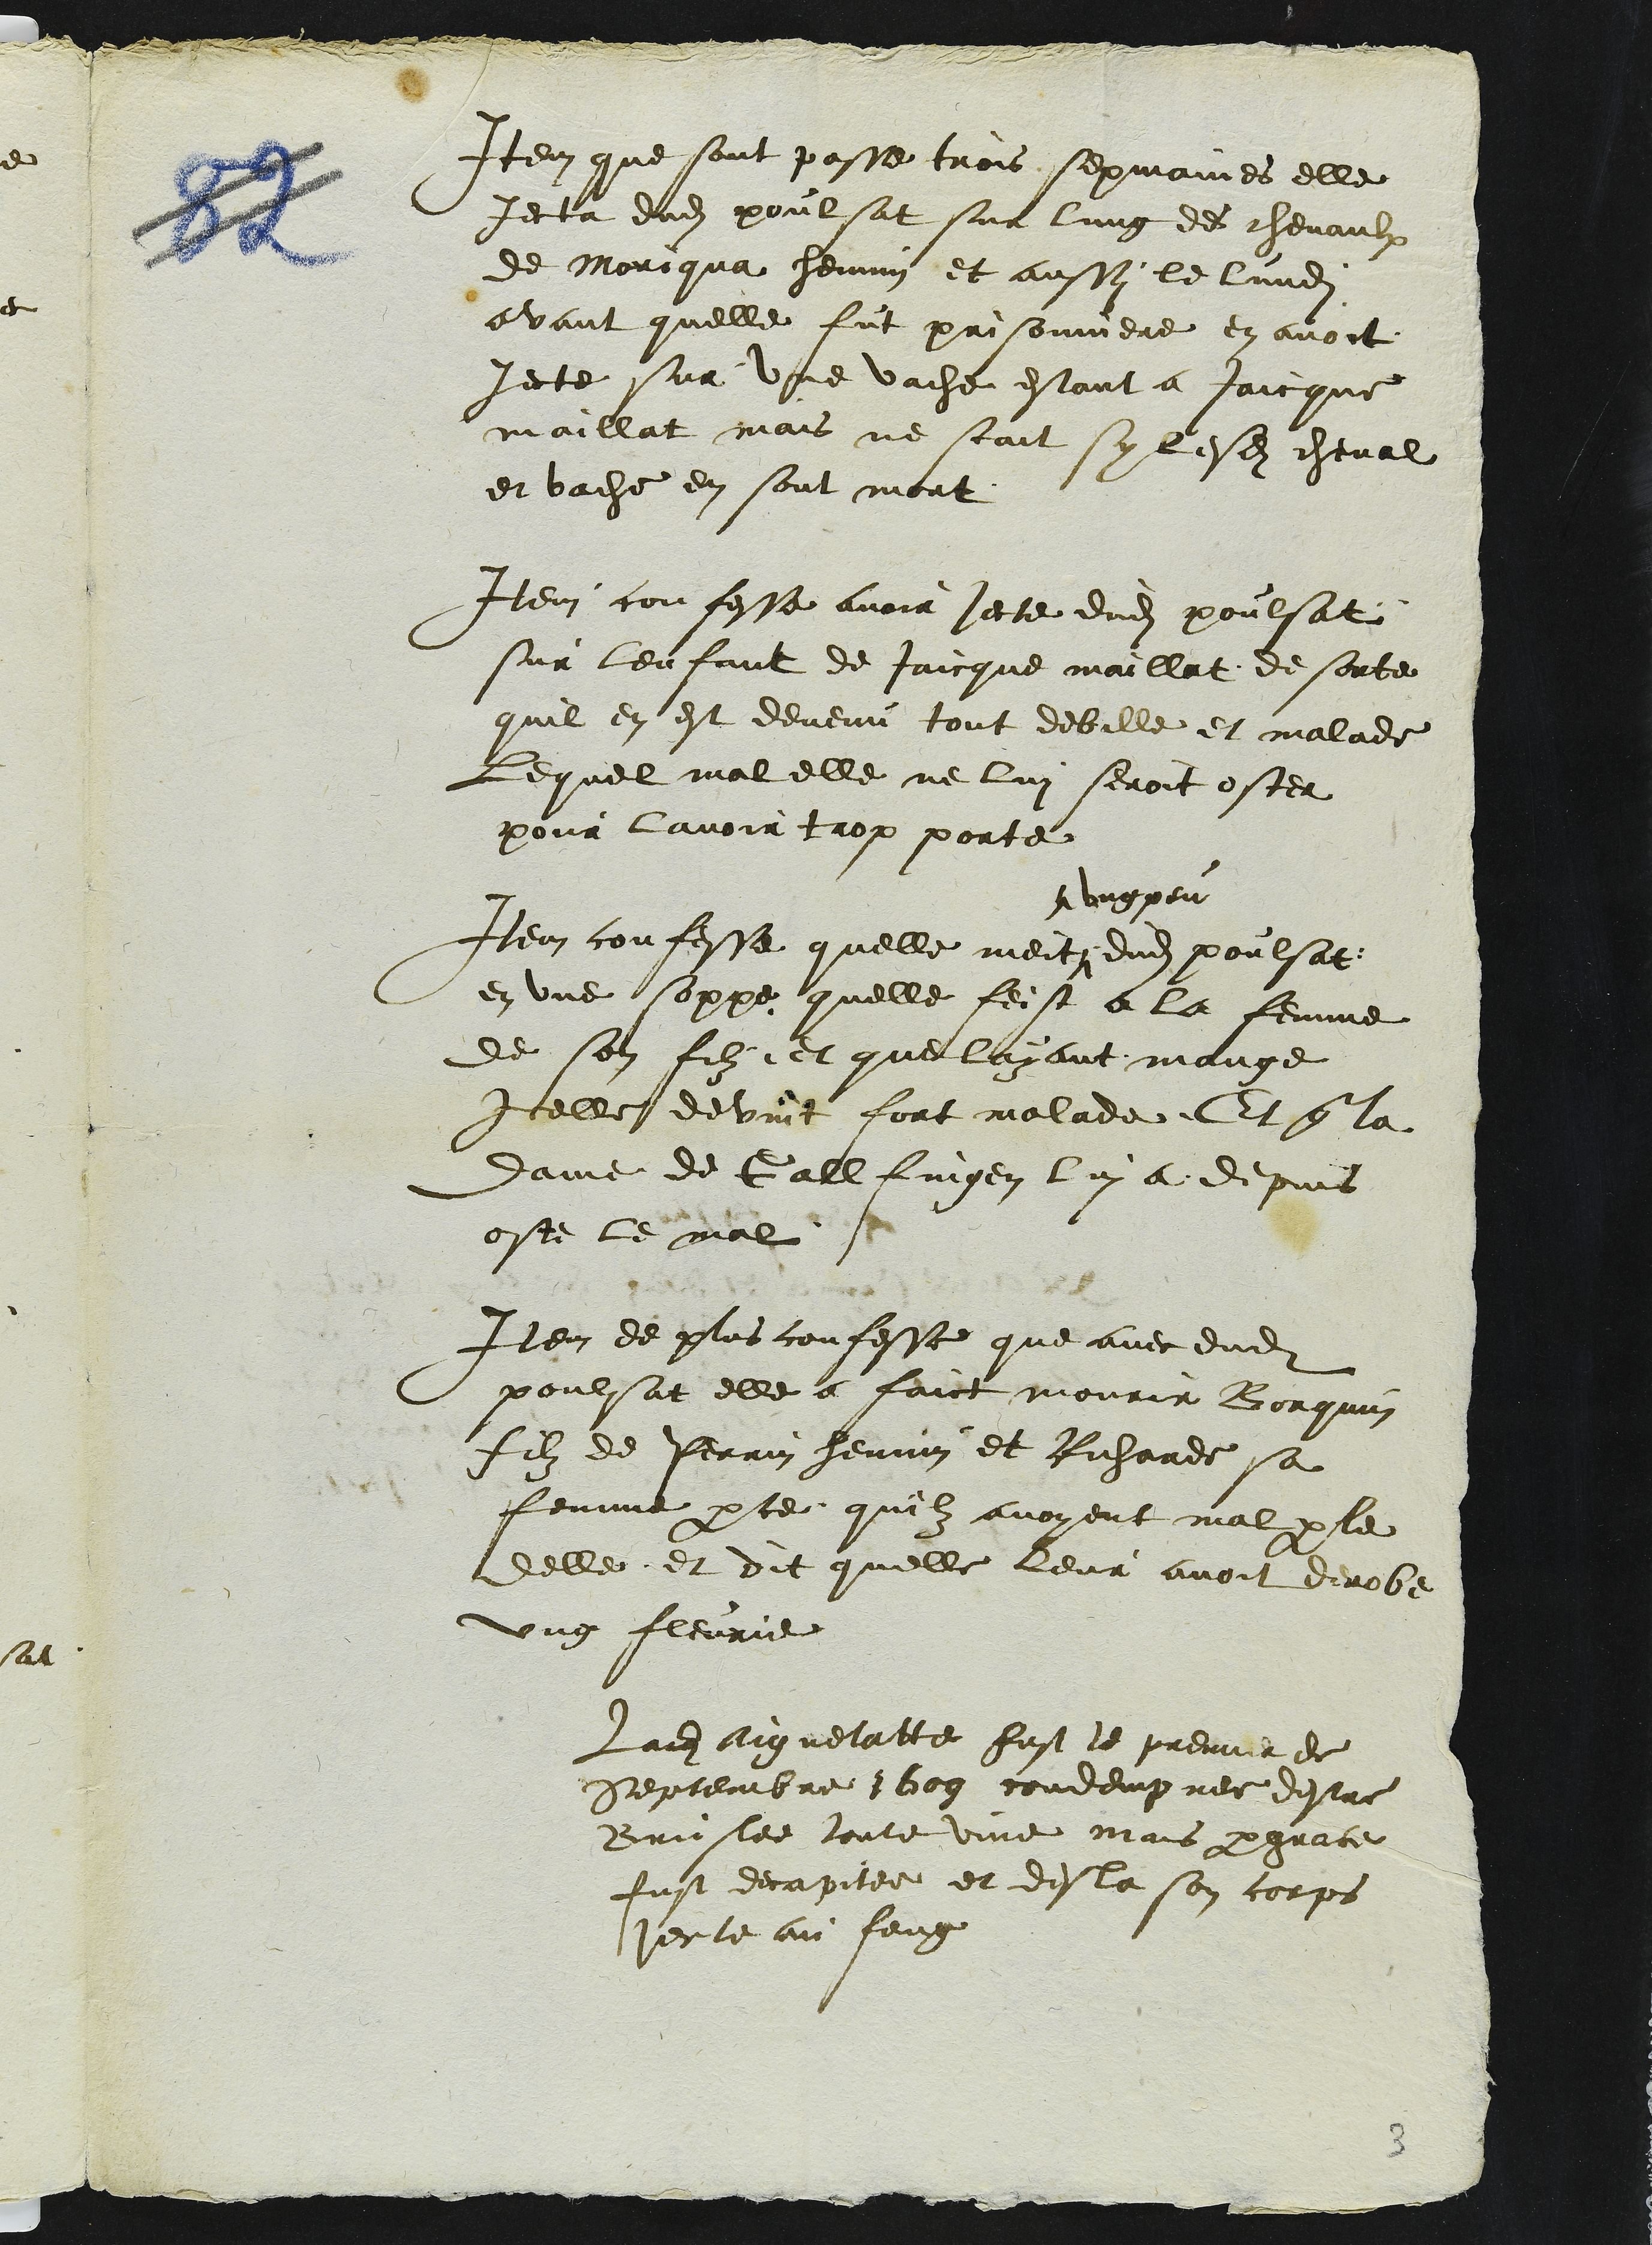 82
Item que sont passe trois sepmaines elle
Jecta dud poulsat sur lung des chevaulx
de Moriqua henmin et aussy le lundj
avant quelle fut prisonniere en avoit
Jecte sur une vache estant a Jaicque
maillat mais ne scait sy lesd cheval
et vache en sont mort
Item confesse avoir Jecte dud poulsat
sur lenfant de Jaicque maillat de sorte
quil en est devenu tout debille et malade
Lequel mal elle ne luj seroit oster
pour lavoir trop porte
ung peu
Item confesse quelle meit dud poulsat
en une soppe quelle feist a la femme
de son filz et que layant mange
Icelle devint fort malade Et q la
Dame de Gallfingen luj a depuis
oste le mal
Item de plus confesse que avec dud
poulsat elle a faict mourir Borquin
filz de Perrin henmin et Richarde sa
femme pce quilz avoyent mal ple
delle et dit quelle leur avoit derobe
ung fleurie
Lad Aignelatte fust le premier de
Septembre 1609 condempnee destre
Bruslee toute vive mais p grace
fust decapitee et desla son corps
Jecte au feug
3